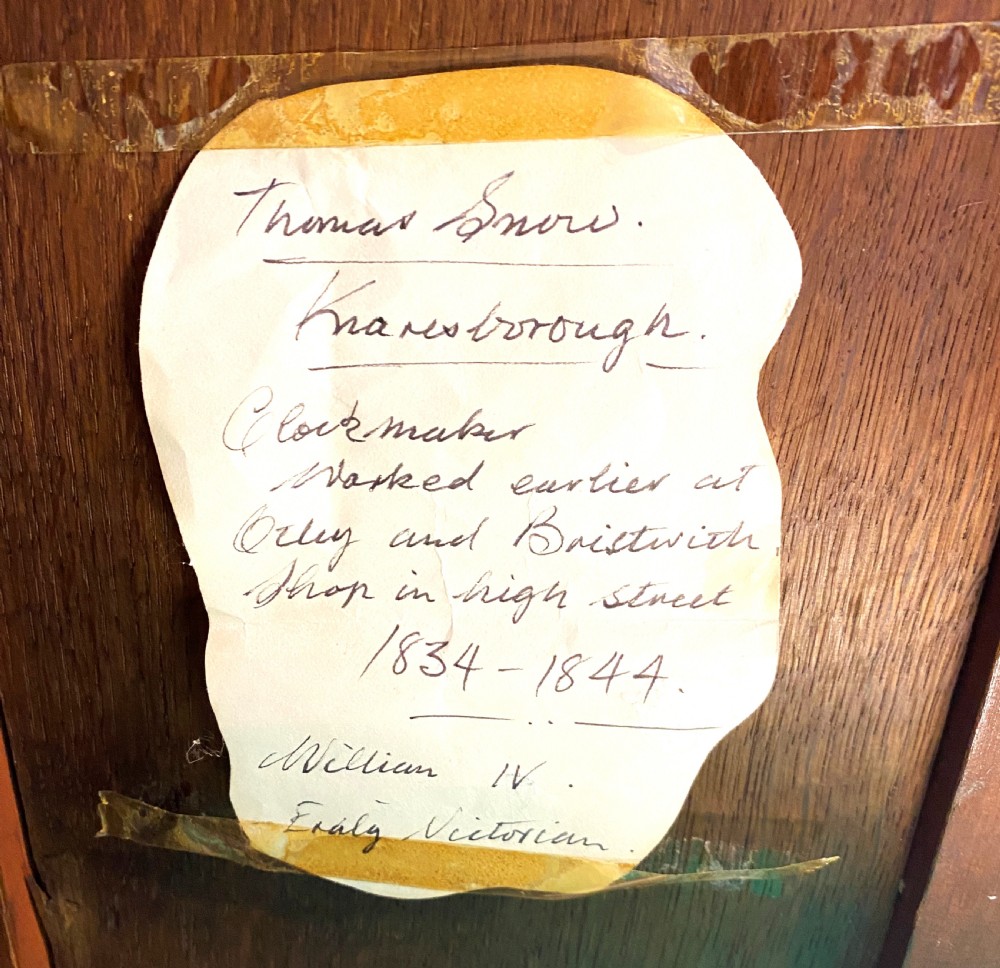 Thomas Snow.
Knaresborough.
Clockmaker
Worked earlier at
Otley and Bristwith.
Shop in high street
1834 - 1844.
William IV.
Eraly Victorian.